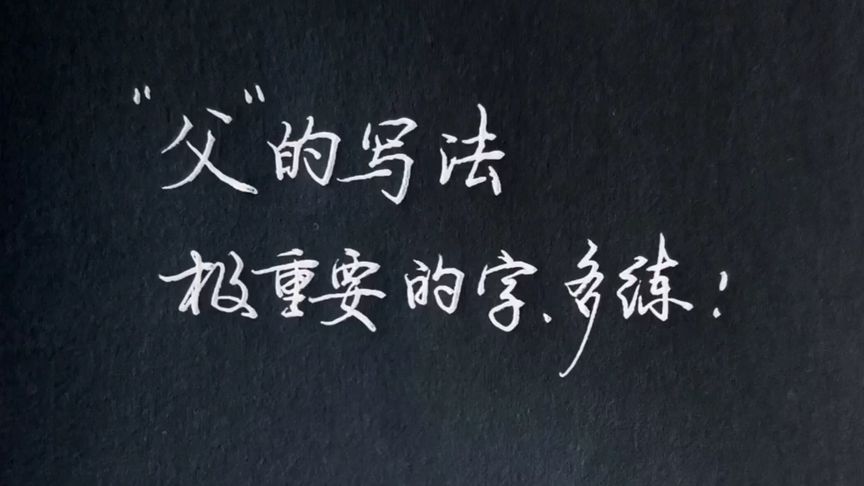 “父”的写法
极重要的字、多练！